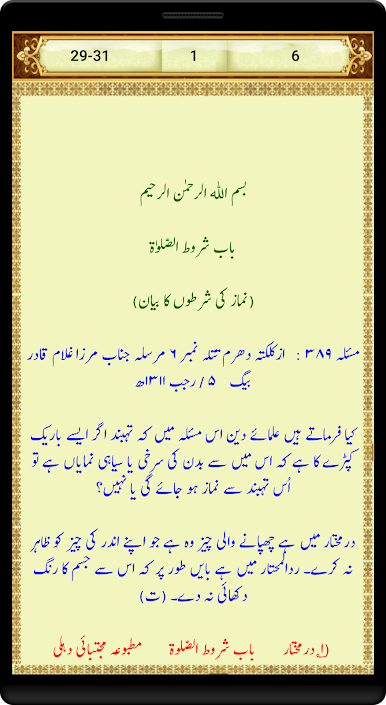 29-31 1 6
بسم الله الرحمٰن الرحیم
باب شروط الصّلوٰة
(نماز کی شرطوں کا بیان)
مسئلہ ۳۸۹ : ازکلکتہ دھرم تتلہ نمبر ۶ مرسلہ جناب مرزا غلام قادر
بیگ ۵ / رجب ۱۳۱۱ھ
کیا فرماتے ہیں علمائے دین اس مسئلہ میں کہ تہبند اگر ایسے باریک
کپڑے کا ہے کہ اس میں سے بدن کی سرخی یا سیاہی نمایاں ہے تو
اُس تہبند سے نماز ہو جائے گی یا نہیں؟
درمختار میں ہے چھپانے والی چیز وہ ہے جو اپنے اندر کی چیز کو ظاہر
نہ کرے۔ ردالمحتار میں ہے بایں طور پر کہ اس سے جسم کا رنگ
دکھائی نہ دے۔ (ت)
(۱؎ درمختار باب شروط الصّلوٰة مطبوعہ مجتبائی دہلی